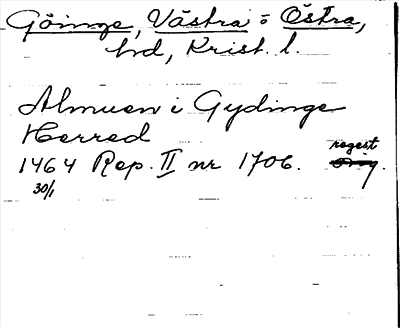 Göinge, Västra o Östra,
hd, Krist. l.
Almuen i Gydinge
Herred
1464 Rep. II nr 1706. regest
30/1 orig.